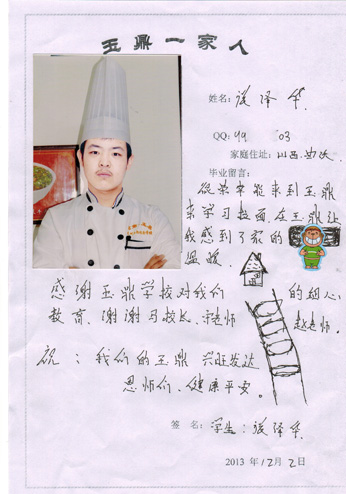 玉鼎一家人
姓名：张泽华
QQ：99 03
家庭住址：山西.
毕业留言：
很荣幸能来到玉鼎
来学习拉面.在玉鼎让
我感到了家的
温暖.
感谢玉鼎学校对我们的细心
教育、谢谢习校长、宋老师 赵老师.
祝：我们的玉鼎 兴旺发达
恩师们、健康平安。
签名：学生：张泽华
2013年12月2日